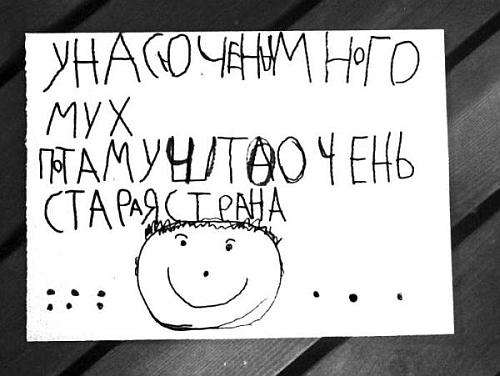 У НАС ОЧЕНЬ МНОГО
МУХ
ПОТАМУ ШТА ОЧЕНЬ
СТАРАЯ СТРАНА